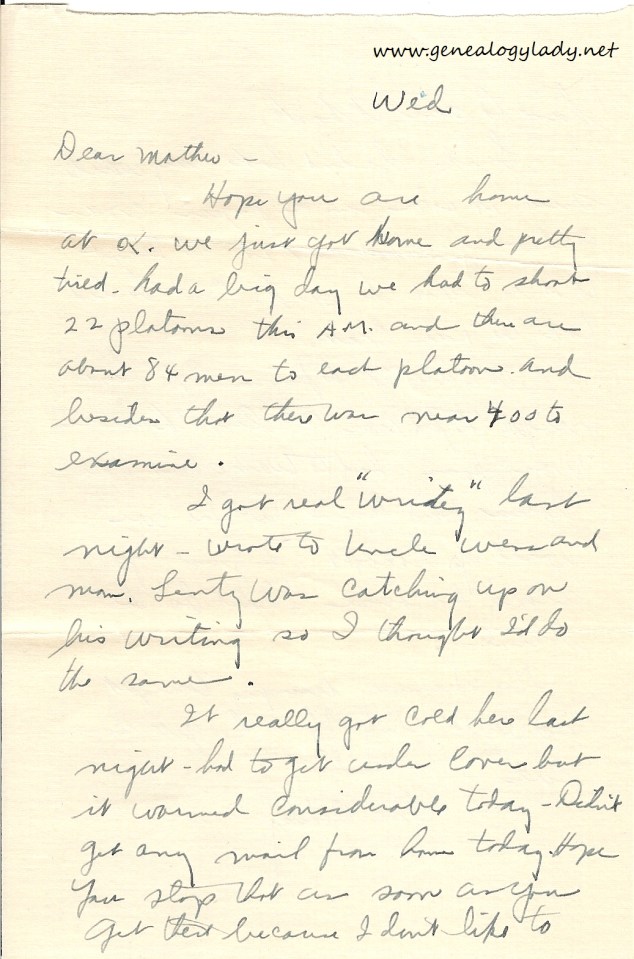 www.genealogylady.net
Wed
Dear Mother -
Hope you are home
at . we just got home and pretty
tired - had a big day we had to shoot
22 platoons this A.M. and there are
about 84 men to each platoon. and
besides that there was near 400 to
examine.
I got real "writey" last
night - wrote to Uncle Wess and
mom. Lentz was catching up on
his writing so I thought I'd do
the same.
It really got cold here last
night - had to get under cover but
it warmed considerable today - Didn't
get any mail from home today. Hope
you stop that as soon as you
get there because I don't like to